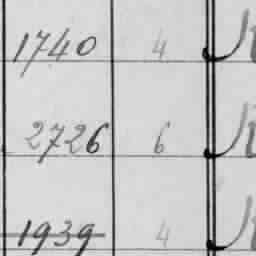 1740 4
2726 6
1939 4